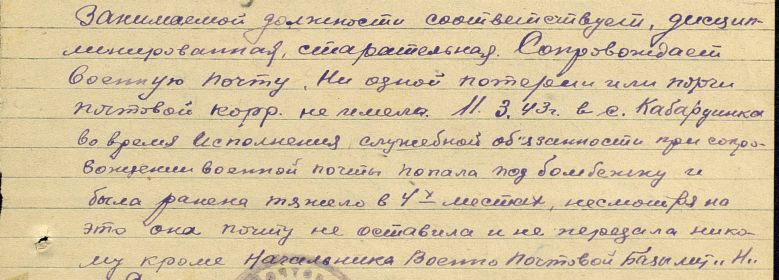 Занимаемой должности соответствует, дисцип-
линированная, старательная. Сопровождает
военную почту. Ни одной потери или порчи
почтовой корр. не имела. 11.3.43г. в с. Кабардинка
во время исполнения служебной об'язанности при сопро-
вождении военной почты попала под бомбежку и
была ранена тяжело в 4х местах, несмотря на
это она почту не оставила и не передала нико-
му кроме Начальника Военно Почтовой Базы